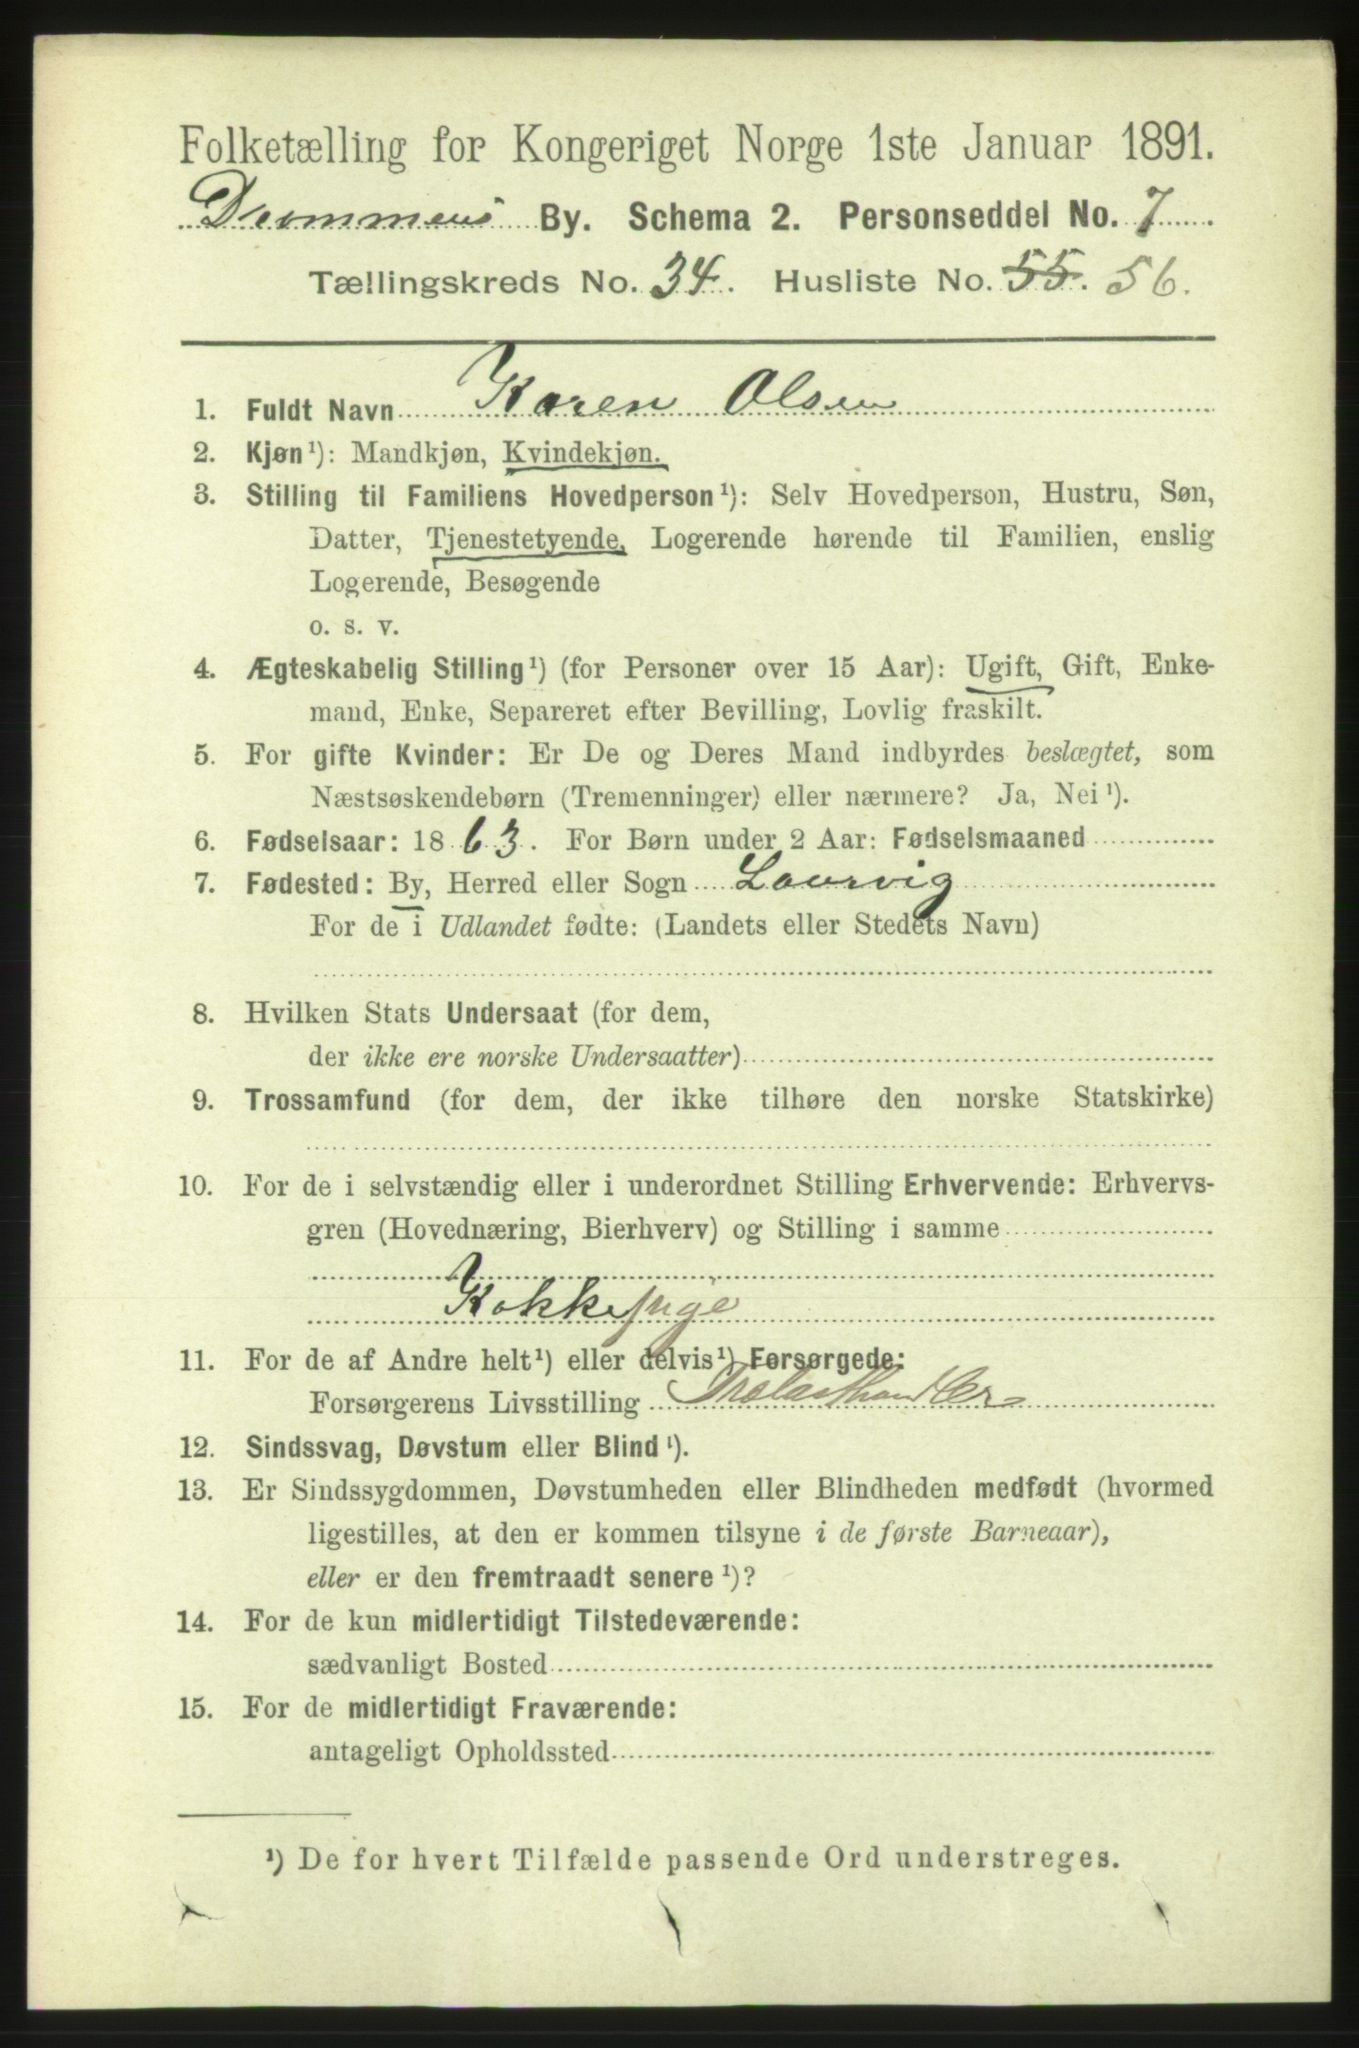 Folketælling for Kongeriget Norge 1ste Januar 1891.
Drammens By. Schema 2. Personseddel No. 7
Tællingskreds No. 34. Husliste No. 55. 56.
1. Fuldt Navn Karen Olsen
2. Kjøn¹): Mandkjøn, Kvindekjøn.
3. Stilling til Familiens Hovedperson¹): Selv Hovedperson, Hustru, Søn,
Datter, Tjenestetyende, Logerende hørende til Familien, enslig
Logerende, Besøgende
o. s. v.
4. Ægteskabelig Stilling¹) (for Personer over 15 Aar): Ugift, Gift, Enke-
mand, Enke, Separeret efter Bevilling, Lovlig fraskilt.
5. For gifte Kvinder: Er De og Deres Mand indbyrdes beslægtet, som
Næstsøskendebørn (Tremenninger) eller nærmere? Ja, Nei¹).
6. Fødselsaar: 1863. For Børn under 2 Aar: Fødselsmaaned
7. Fødested: By, Herred eller Sogn Laurvig
For de i Udlandet fødte: (Landets eller Stedets Navn)
8. Hvilken Stats Undersaat (for dem,
der ikke ere norske Undersaatter)
9. Trossamfund (for dem, der ikke tilhøre den norske Statskirke)
10. For de i selvstændig eller i underordnet Stilling Erhvervende: Erhvervs-
gren (Hovednæring, Bierhverv) og Stilling i samme
Kokkepige
11. For de af Andre helt¹) eller delvis¹) Forsørgede:
Forsørgerens Livsstilling Trælasthandler
12. Sindssvag, Døvstum eller Blind¹).
13. Er Sindssygdommen, Døvstumheden eller Blindheden medfødt (hvormed
ligestilles, at den er kommen tilsyne i de første Barneaar),
eller er den fremtraadt senere¹)?
14. For de kun midlertidigt Tilstedeværende:
sædvanligt Bosted
15. For de midlertidigt Fraværende:
antageligt Opholdssted
¹) De for hvert Tilfælde passende Ord understreges.